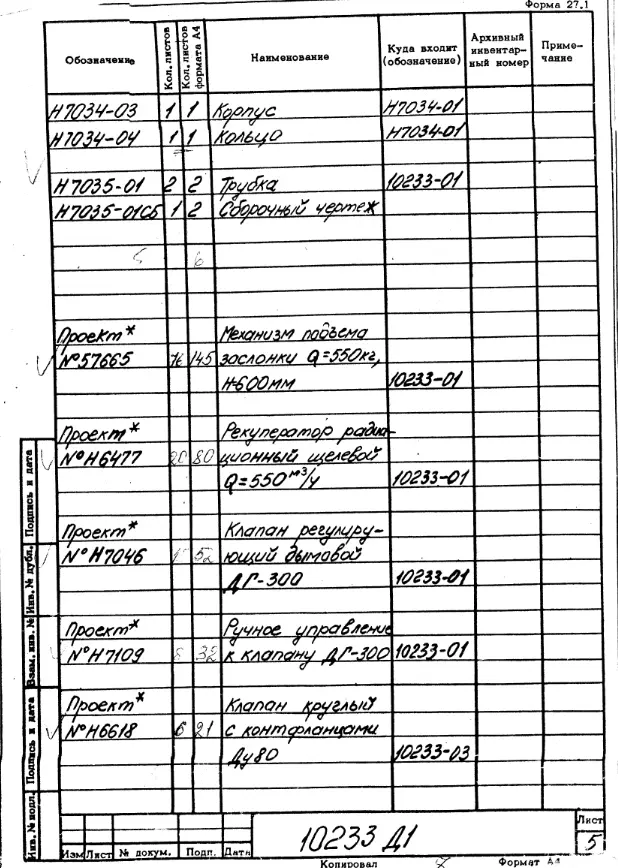 Форма 27.1
Обозначение Кол. листов Кол. листов формата А4 Наименование Куда входит (обозначение) Архивный инвентарный номер Примечание
Н7034-03 1 1 Корпус Н7034-01
Н7034-04 1 1 Кольцо Н7034-01
Н7035-01 2 2 Трубка 10233-01
Н7035-01СБ 1 2 Сборочный чертеж
6
Проект* Механизм подъема
№57665 145 заслонки Q=550кг,
H-600мм 10233-01
Проект* Рекуператор радиа-
№Н6477 80 ционный щелевой
Q=550 м³/ч 10233-01
Проект* Клапан регулиру-
№Н7046 52 ющий дымовой
ДГ-300 10233-01
Проект* Ручное управление
№Н7109 8 32 к клапану ДГ-300 10233-01
Проект* Клапан круглый
№Н6618 6 21 с контфланцами
Ду80 10233-03
Инв. № подл. Подпись и дата Взам. инв. № Инв. № дубл. Подпись и дата
10233 Д1
Лист
5
Изм Лист № докум. Подп. Дата
Копировал Формат А4